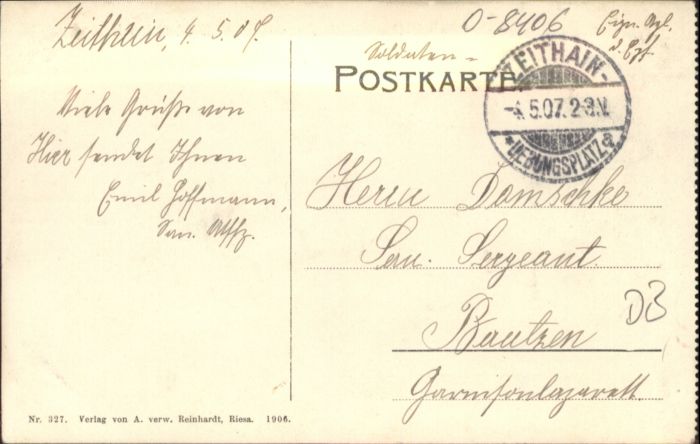 Zeithain, 4.5.07.
O-8406
Eign. Agl.
Soldaten-
POSTKARTE
ZEITHAIN-
-4.5.07.2-3.N.
*UEBUNGSPLATZ a
Viele Grüße von
Hier sendet Ihnen
Emil Hoffmann,
San. Utffz.
Herrn Domschke
San. Sergeant
Bautzen
DB
Garnisonlazarett.
Nr. 327. Verlag von A. verw. Reinhardt, Riesa. 1906.